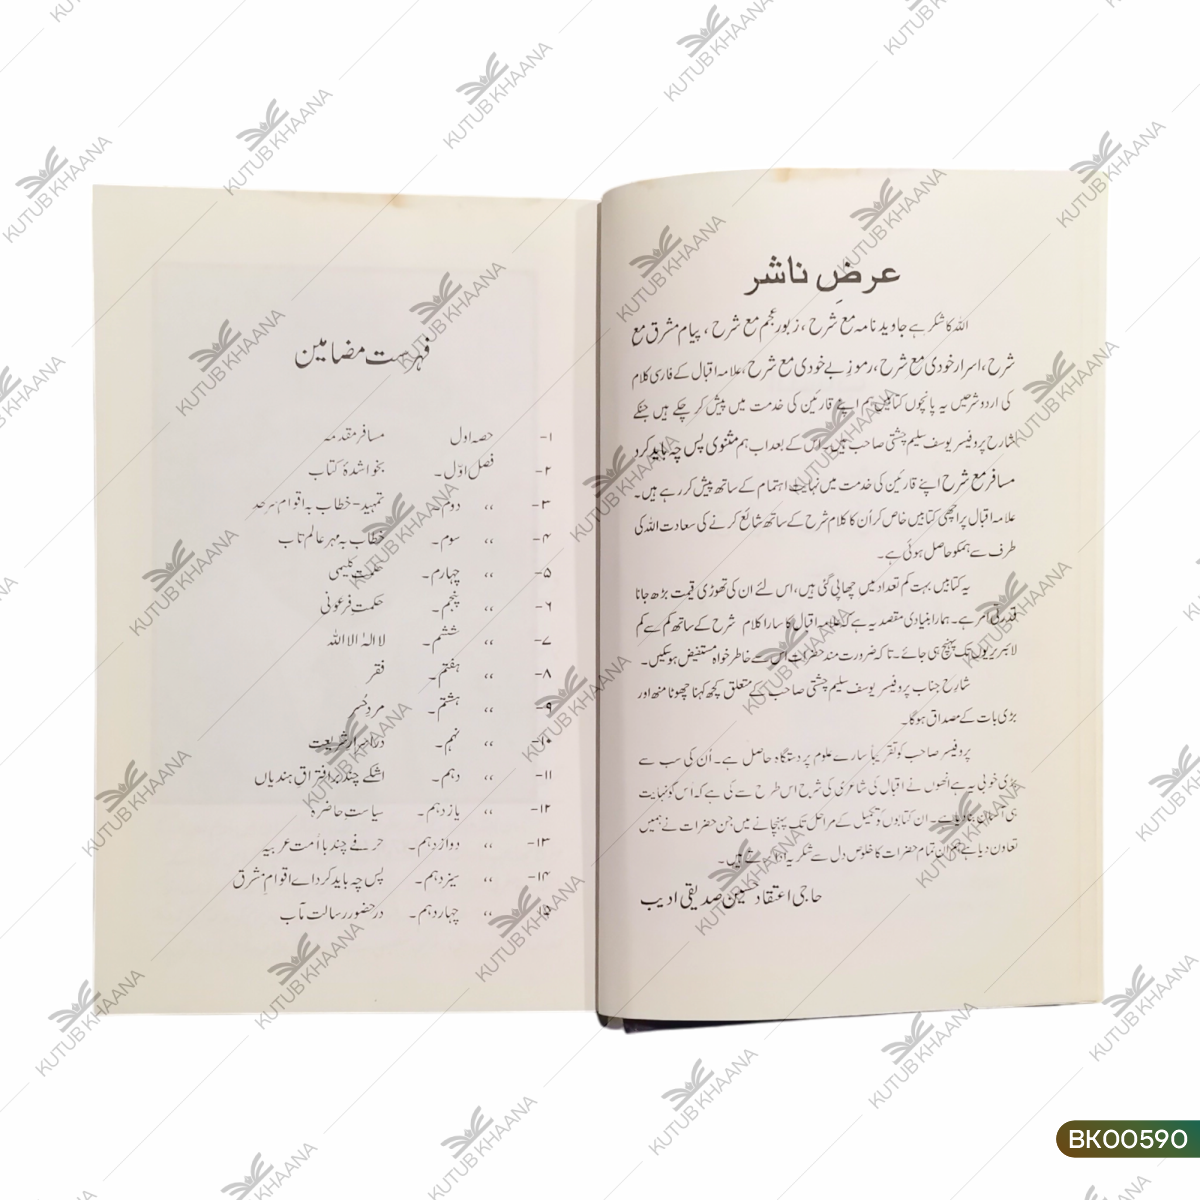 عرضِ ناشر
اللہ کا شکر ہے جاوید نامہ مع شرح، زبور عجم مع شرح، پیام مشرق مع
شرح، اسرار خودی مع شرح، رموزِ بے خودی مع شرح، علامہ اقبال کے فارسی کلام
کی اردو شرحیں یہ پانچوں کتابیں ہم اپنے قارئین کی خدمت میں پیش کر چکے ہیں جنکے
شارح پروفیسر یوسف سلیم چشتی صاحب ہیں۔ اس کے بعد اب ہم مثنوی پس چہ باید کرد
مسافر مع شرح اپنے قارئین کی خدمت میں نہایت اہتمام کے ساتھ پیش کر رہے ہیں۔
علامہ اقبال پر اچھی کتابیں خاص کر اُن کا کلام شرح کے ساتھ شائع کرنے کی سعادت اللہ کی
طرف سے ہمکو حاصل ہوئی ہے۔
یہ کتابیں بہت کم تعداد میں چھاپی گئی ہیں، اس لئے ان کی تھوڑی قیمت بڑھ جانا
قدرتی امر ہے۔ ہمارا بنیادی مقصد یہ ہے کہ علامہ اقبال کا سارا کلام شرح کے ساتھ کم سے کم
لائبریریوں تک پہنچ ہی جائے۔ تاکہ ضرورت مند حضرات اس سے خاطر خواہ مستفیض ہو سکیں۔
شارح جناب پروفیسر یوسف سلیم چشتی صاحب کے متعلق کچھ کہنا چھوٹا منھ اور
بڑی بات کے مصداق ہوگا۔
پروفیسر صاحب کو تقریباً سارے علوم پر دستگاہ حاصل ہے۔ اُن کی سب سے
بڑی خوبی یہ ہے انھوں نے اقبال کی شاعری کی شرح اس طرح سے کی ہے کہ اُس کو نہایت
ہی آسان بنا دیا ہے۔ ان کتابوں کو تکمیل کے مراحل تک پہنچانے میں جن حضرات نے ہمیں
تعاون دیا ہے ہم ان تمام حضرات کا خلوص دل سے شکریہ ادا کرتے ہیں۔
حاجی اعتقاد حسین صدیقی ادیب
فہرست مضامین
۱- حصہ اول مسافر مقدمہ
۲- فصل اوّل۔ بخوانندۂ کتاب
۳- ،، دوم۔ تمہید - خطاب بہ اقوام سرحد
۴- ،، سوم۔ خطاب بہ مہر عالم تاب
۵- ،، چہارم۔ حکمتِ کلیمی
۶- ،، پنجم۔ حکمتِ فرعونی
۷- ،، ششم۔ لا الہٰ الا اللہ
۸- ،، ہفتم۔ فقر
۹- ،، ہشتم۔ مردِ حُر
۱۰- ،، نہم۔ در اسرارِ شریعت
۱۱- ،، دہم۔ اشکے چند بر افتراق ہندیاں
۱۲- ،، یازدہم۔ سیاستِ حاضرہ
۱۳- ،، دوازدہم۔ حرفے چند با اُمت عربیہ
۱۴- ،، سیزدہم۔ پس چہ باید کرد اے اقوام مشرق
۱۵ ،، چہاردہم۔ در حضور رسالت مآب
KUTUB KHAANA
BK00590